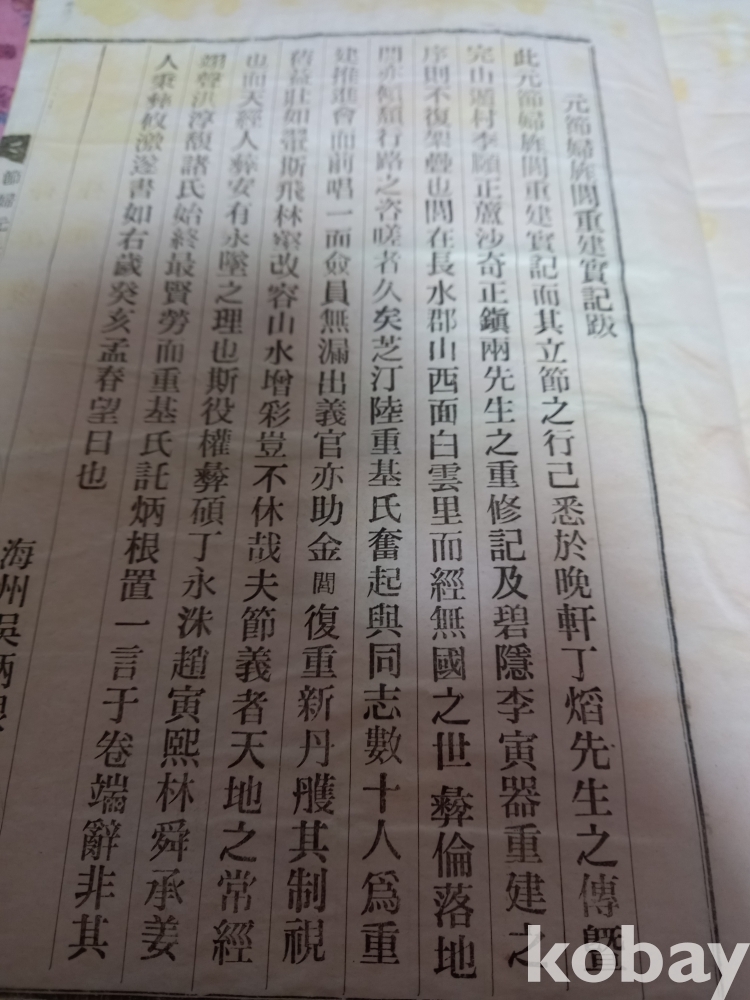 元節婦旌閭重建實記跋
此元節婦旌閭重建實記而其立節之行已悉於晚軒丁熖先生之傳曁
完山遯村李願正蘆沙奇正鎭兩先生之重修記及碧隱李寅器重建之
序則不復架疊也閭在長水郡山西面白雲里而經無國之世彜倫落地
閭亦傾頹行路之咨嗟者久矣芝汀陸重基氏奮起與同志數十人爲重
建推進會而前唱一面僉員無漏出義官亦助金閭復重新丹雘其制視
舊益壯如翬斯飛林壑改容山水增彩豈不休哉夫節義者天地之常經
也而天經人彜安有永墜之理也斯役權彜碩丁永洙趙寅熙林舜承姜
聲洪淳馥諸氏始終最賢勞而重基氏託炳根置一言于卷端辭非其
人秉彜攸激遂書如右歲癸亥孟春望日也
海州吳炳根
節婦元
kobay